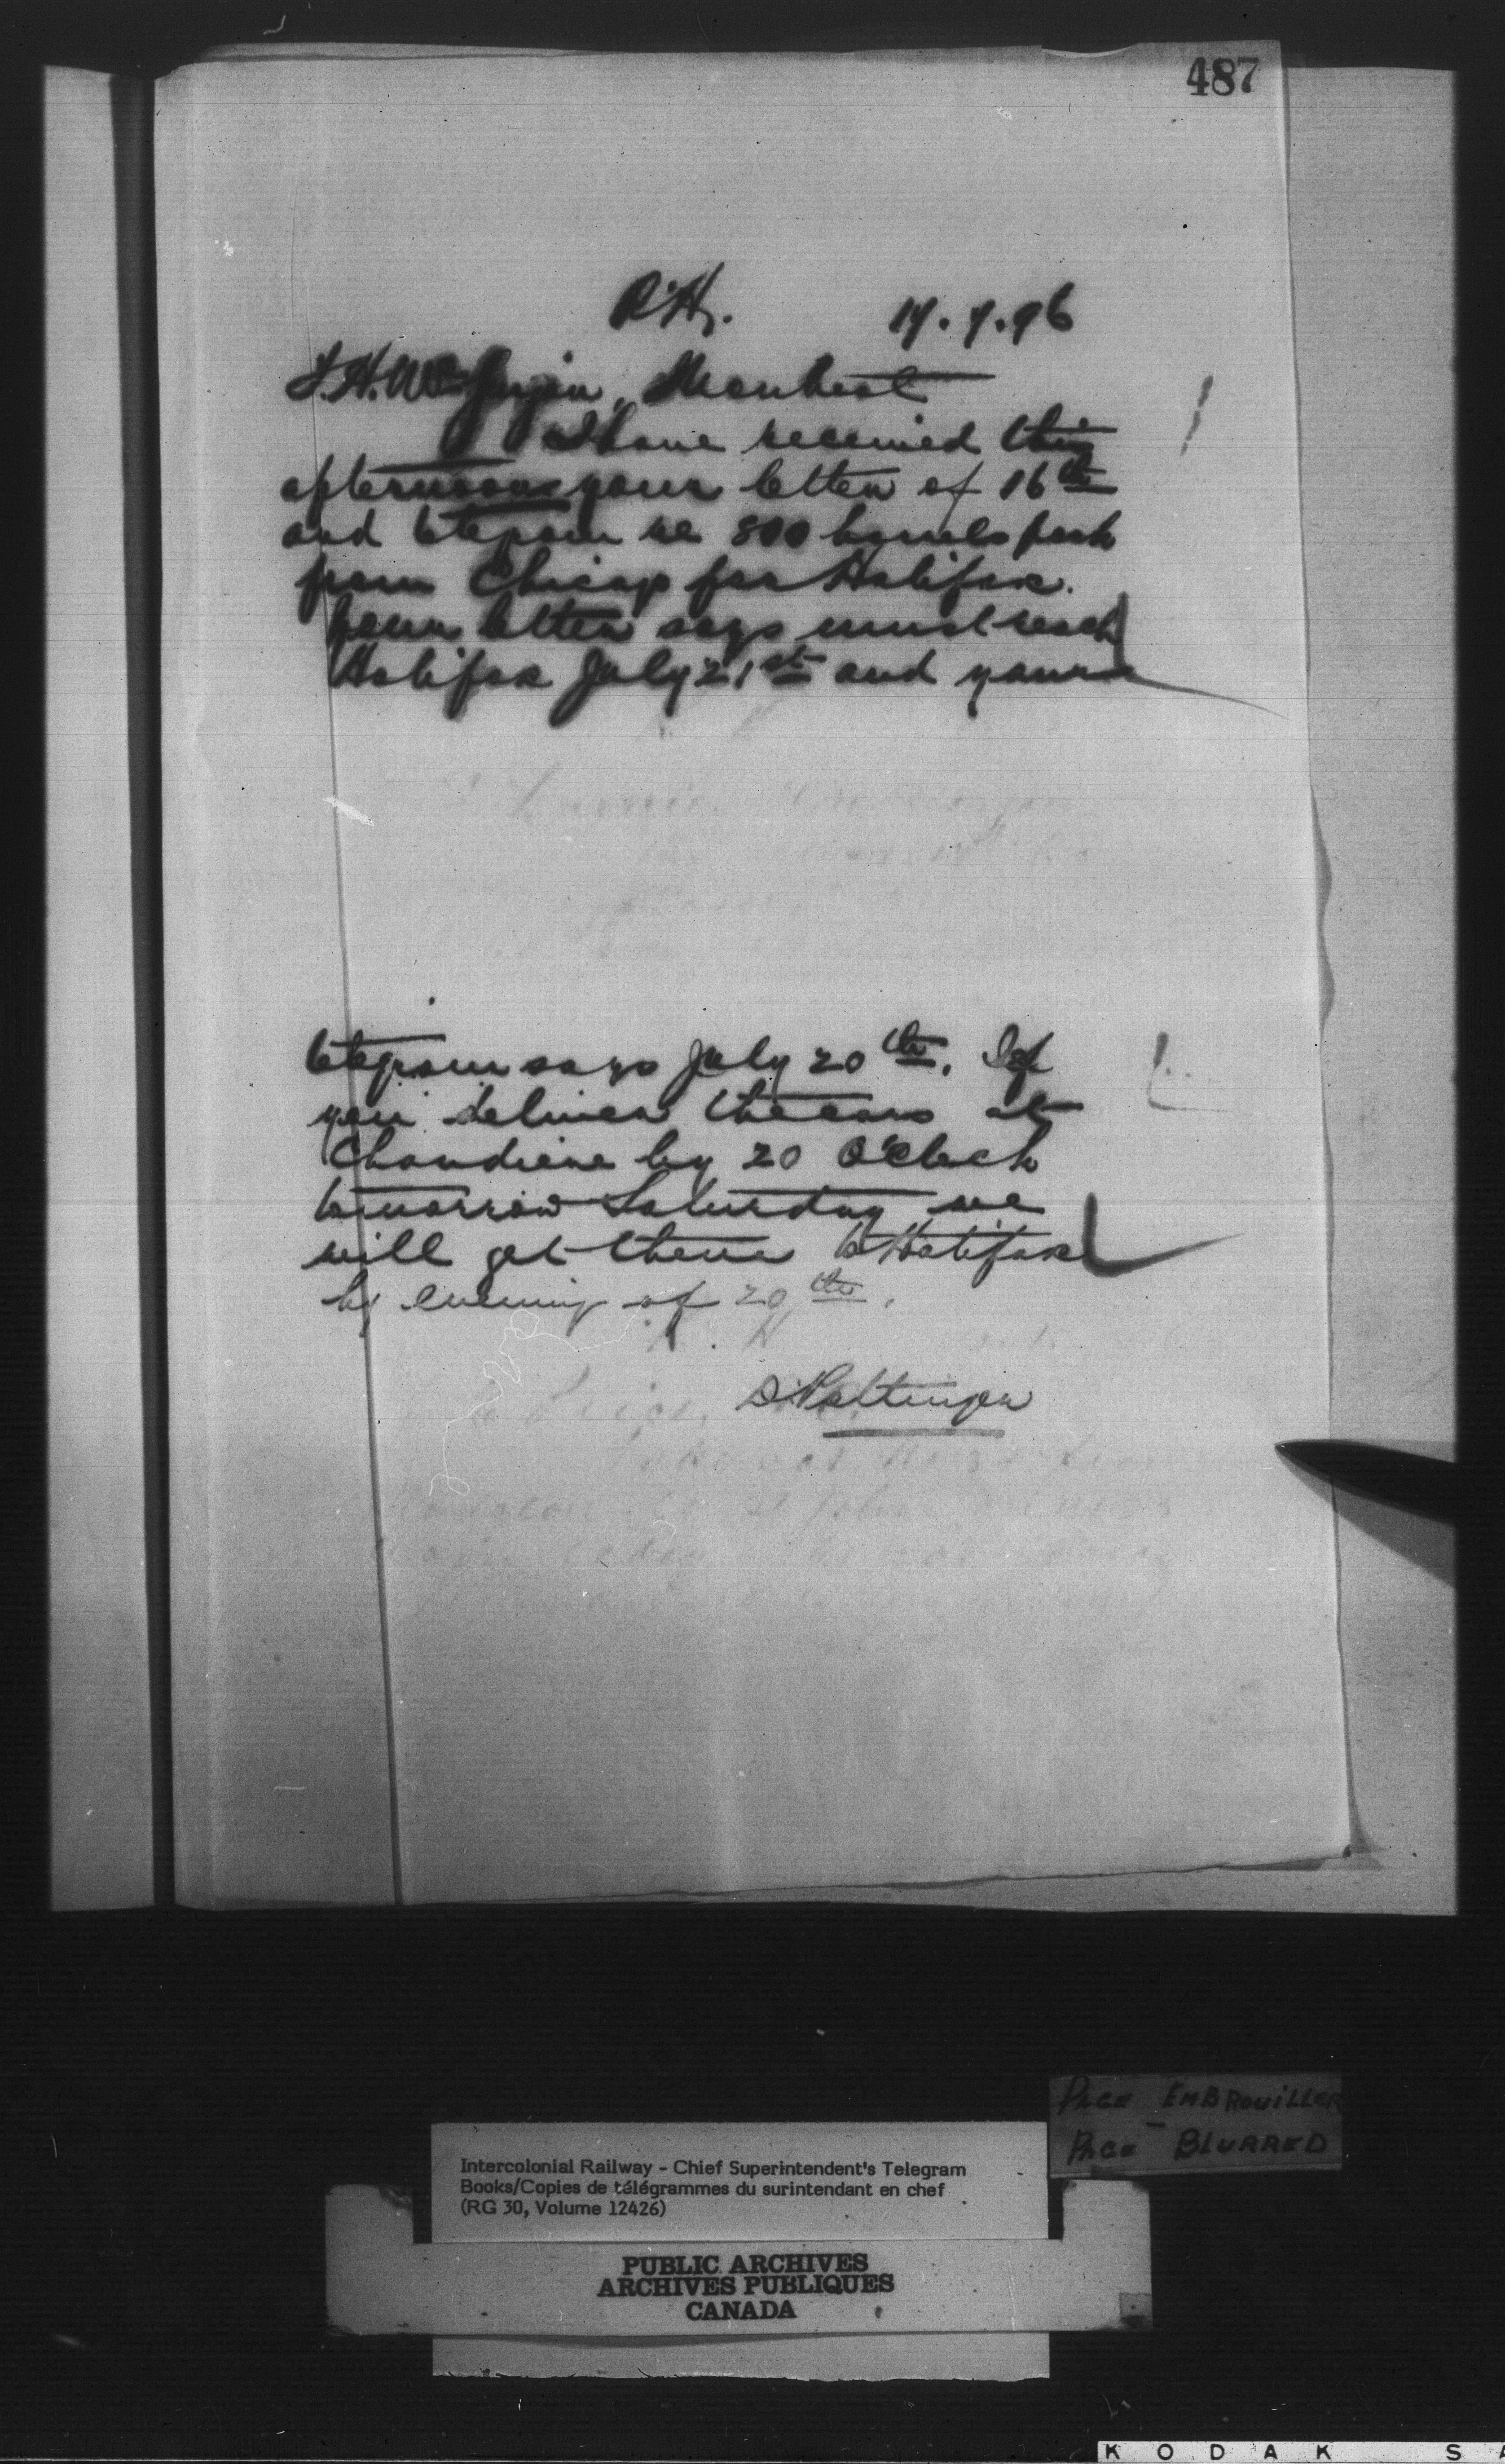 487
R.H. 17.7.96
J.H. McGuigan, Montreal
I have received this
afternoon your letter of 16th
and telegram re 800 barrels pork
from Chicago for Halifax.
Your letter says must reach
Halifax July 21st and your
telegram says July 20th. If
you deliver the cars at
Chaudiere by 20 O'Clock
tomorrow Saturday we
will get them to Halifax
by evening of 20th.
D Pottinger
PAGE EMBROUILLER
PAGE BLURRED
Intercolonial Railway - Chief Superintendent's Telegram
Books/Copies de télégrammes du surintendant en chef
(RG 30, Volume 12426)
PUBLIC ARCHIVES
ARCHIVES PUBLIQUES
CANADA
KODAK SA